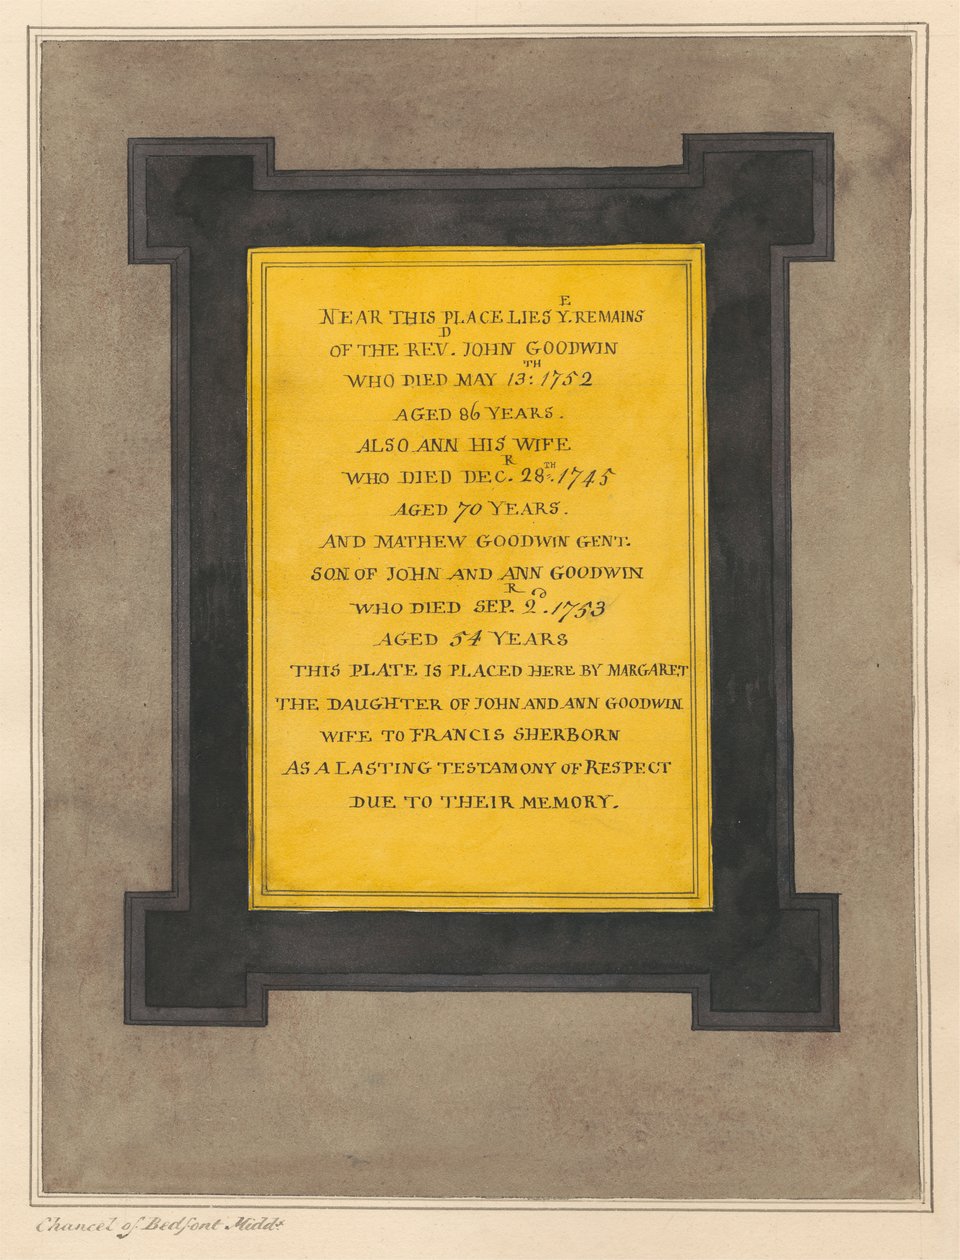 NEAR THIS PLACE LIES Y.E REMAINS
OF THE REV.D JOHN GOODWIN
WHO DIED MAY 13:TH 1752
AGED 86 YEARS.
ALSO ANN HIS WIFE
WHO DIED DEC.R 28TH. 1745
AGED 70 YEARS.
AND MATHEW GOODWIN GENT.
SON OF JOHN AND ANN GOODWIN
WHO DIED SEP.R 2.D 1753
AGED 54 YEARS
THIS PLATE IS PLACED HERE BY MARGARET
THE DAUGHTER OF JOHN AND ANN GOODWIN
WIFE TO FRANCIS SHERBORN
AS A LASTING TESTAMONY OF RESPECT
DUE TO THEIR MEMORY.
Chancel of Bedfont Middx